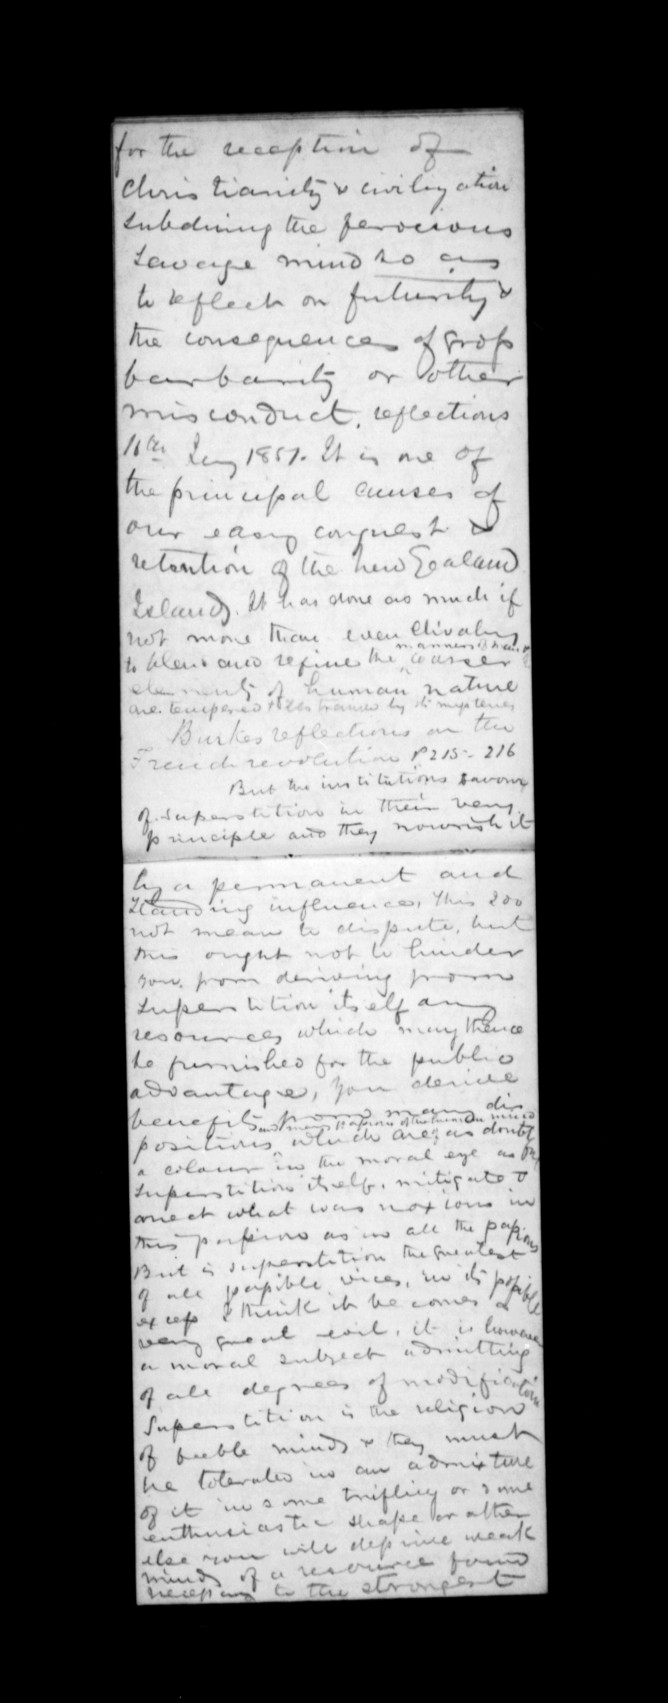 for the reception of
Christianity & civilization
subduing the ferocious
savage mind so as
to reflect on futurity &
the consequences of gross
barbarity or other
misconduct. reflections
16th Jany 1851. It is one of
the principal causes of
our easy conquest &
retention of the New Zealand
Islands. It has done as much if
not more than even Chivalry
manners of man &
to blend and refine the coarser
elements of human nature
are tempered & restrained by its mysteries
Burkes reflections on the
French revolution P 215 - 216
But the institutions savour
of superstition in their very
principle and they nourish it
by a permanent and
standing influence, this I do
not mean to dispute, but
this ought not to hinder
you from deriving from
superstition itself any
resources which may thence
be furnished for the public
advantage, you derive
benefits from many dis
and many passions of the human mind
positions which are of as doubtful
a colour in the moral eye as
superstition itself. mitigate &
correct what was noxious in
this passion as in all the passions
But is superstition the greatest
of all possible vices, in its possible
excess I think it becomes a
very great evil, it is however
a moral subject admitting
of all degrees of modification
Superstition is the religion
of feeble minds & they must
be tolerated in an admixture
of it in some trifling or some
enthusiastic shape or other
else you will deprive weak
minds of a resource found
necessary to the strongest